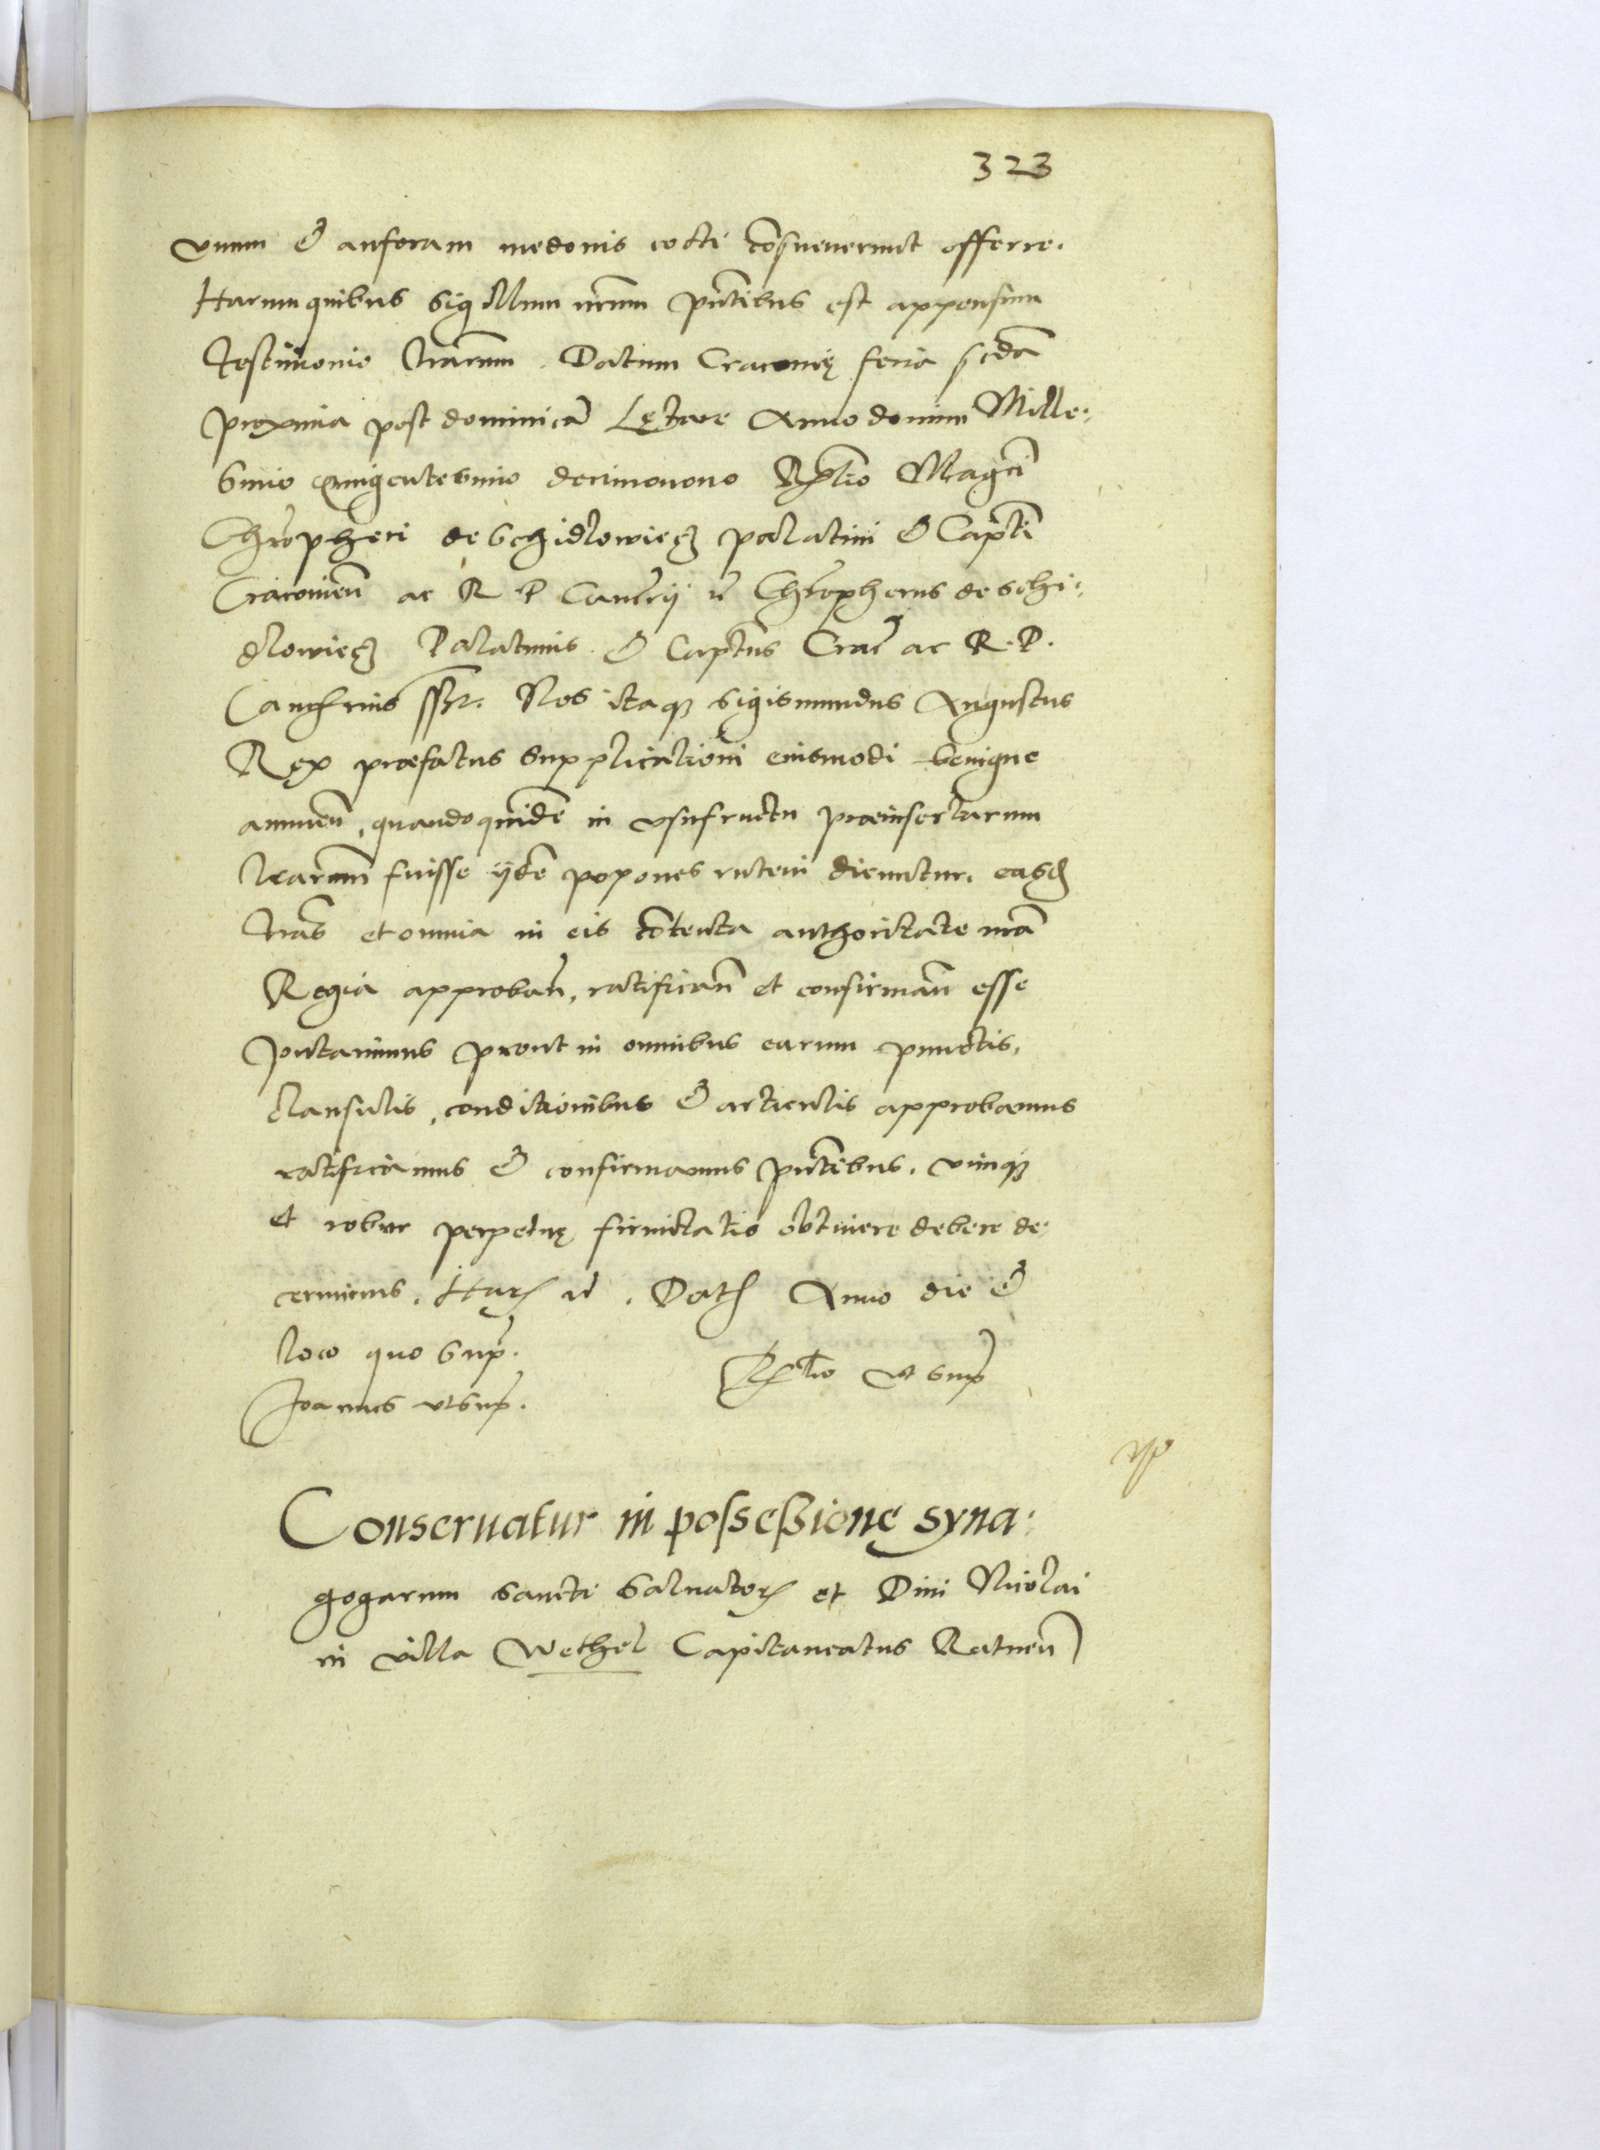 323
vnum & anforam medonis cocti cōsueuerunt offerre.
Harum quibus sigillum nr̄um pn̄tibus est appensum
testimonio lrārum. Datum Cracouię feria scdā
proxima post dominicā Lętare Anno domini Mille-
simo quingentesimo decimonono Rlt̄io Magci
Chrōpheri de Schidlowiecz palatini & Capti
Cracouieñ ac R P Cancrij v̄ Chrōpherus de Schi-
dlowiecz Palatinus & Captus Crac̄ ac R. P.
Canclrius sszt. Nos itaq3 Sigismundus Augustus
Rex præfatus supplicationi eiusmodi benigne
annueñ, quandoquidē in vsufructu præinsertarum
lrarum fuisse ijdē popones ruteni dicuntur. easd
lrās et omnia in eis cōtenta authoritate nrā
Regia approbañ, ratificañ et confirmañ esse
putauimus prout in omnibus earum punctis,
clausulis, conditionibus & articulis approbamus
ratificamus & confirmamus pn̄tibus. vimq3
et robur perpetuę firmitatis obtinere debere de-
cernimus. Har. Dat. Anno die &
loco quo sup.
Rlt̄io vt sup
Joannes vt sup.
Conseruatur in possessione syna-
gogarum sancti Saluator. et Diui Nicolai
in villa Wethel Capitaneatus Ratneñ